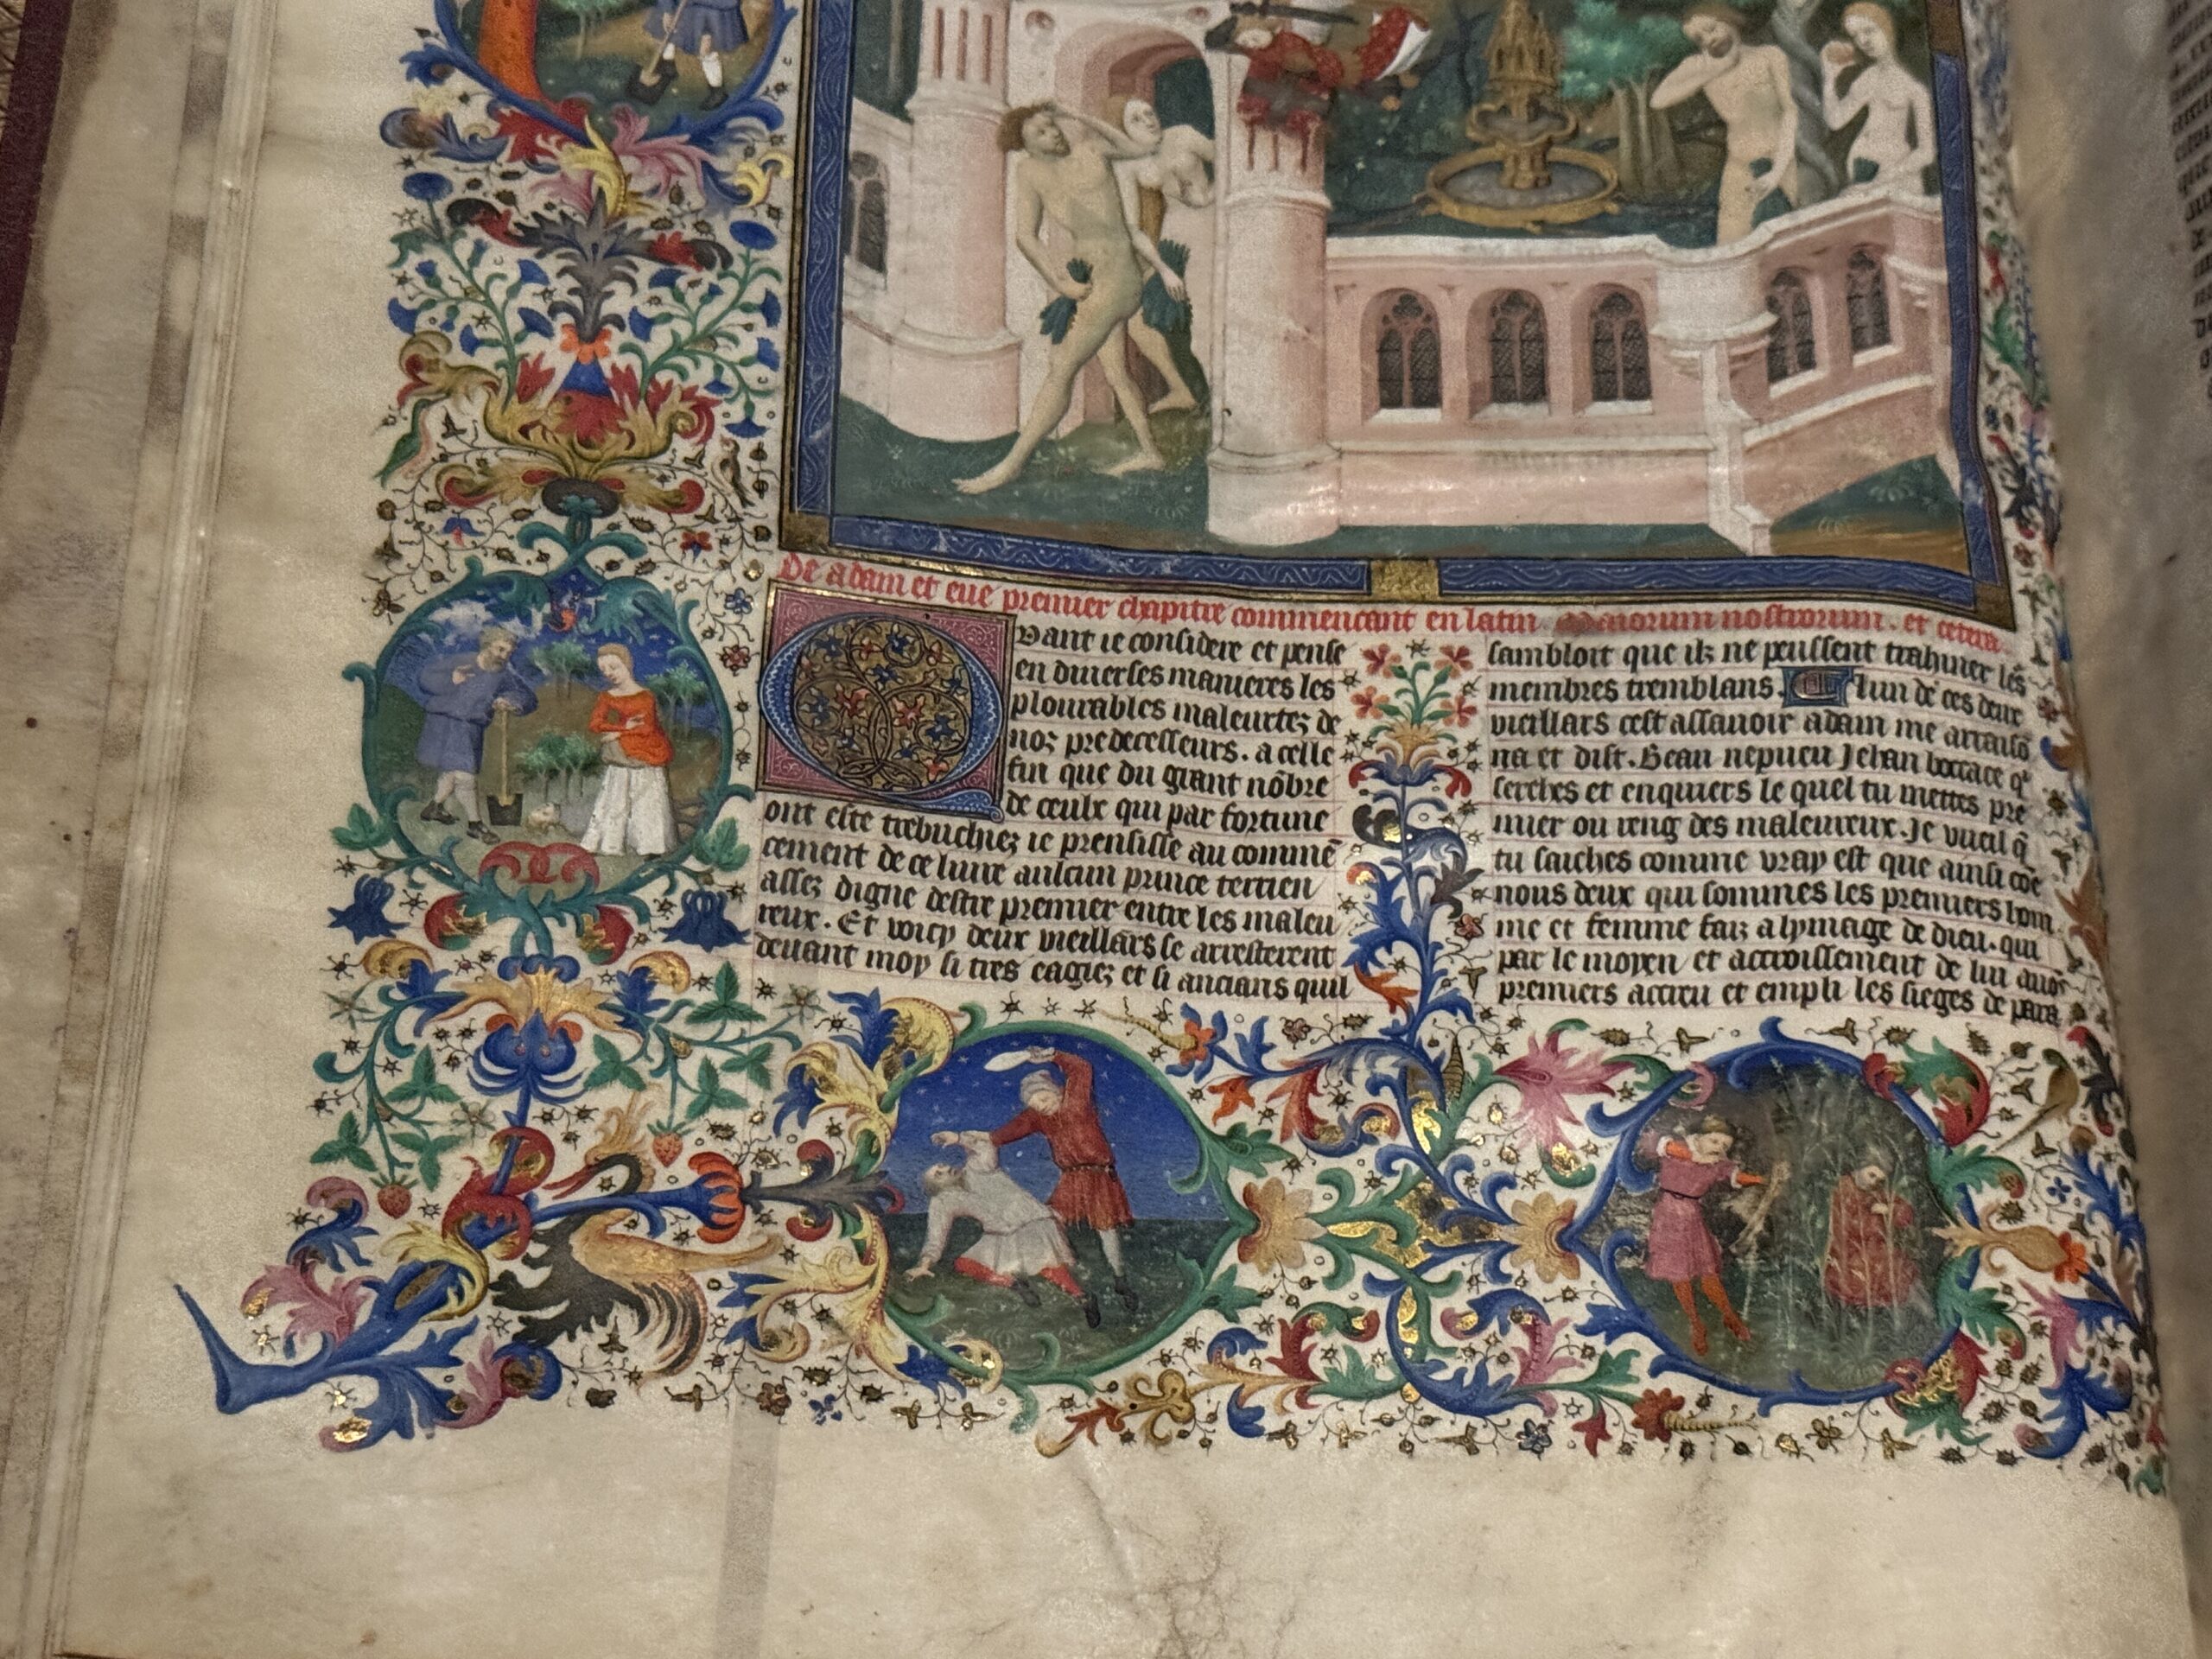 De adam et eue premier chapitre commencant en latin maiorum nostrorum. et cetera.
Quant ie considere et pense
en diuerses manieres les
plourables maleurtez de
noz predecesseurs. a celle
fin que du grant nōbre
de ceulx qui par fortune
ont este trebuchiez ie prensisse au commē
cement de ce liure aulcun prince terrien
assez digne destre premier entre les maleu
reux. Et voicy deux vieillars se arresterent
deuant moy si tres eagiez et si ancians quil
sambloit que ilz ne peussent trahiner les
membres tremblans. Et lun de ces deux
vieillars cest assauoir adam me arraisō
na et dist. Beau nepueu Jehan boccace q̄
serches et enquiers le quel tu mettes pre
mier ou reng des maleureux. Je vueil q̄
tu saiches comme vray est que ainsi cōe
nous deux qui sommes les premiers hom
me et femme faiz a lymage de dieu. qui
par le moyen et accroissement de lui auōs
premiers accreu et empli les sieges de para